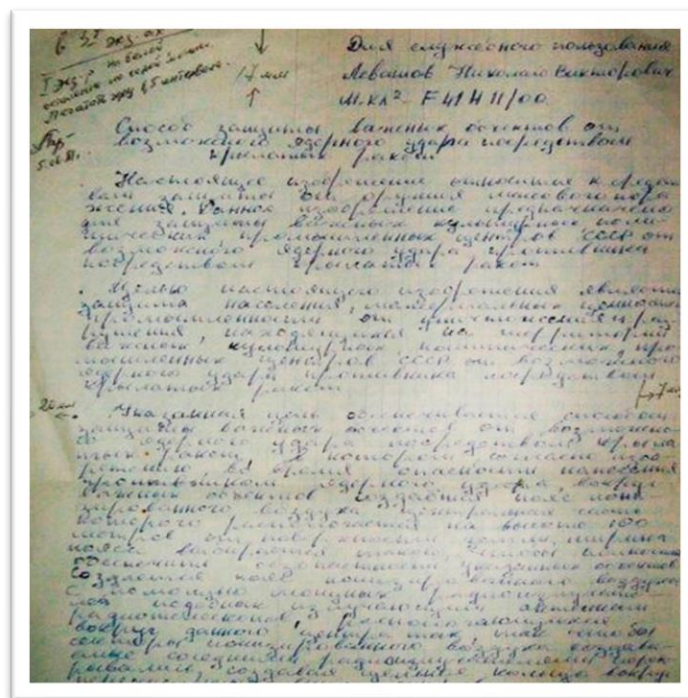 в 3х экз-ах
I экз-р на белой
остальные на серой бумаге.
Печатать через 1,5 интервала.
17 мм
Для служебного пользования
Левашов Николай Викторович
М.кл² F 41 H 11/00
Способ защиты важных объектов от
возможного ядерного удара посредством
крылатых ракет
Настоящее изобретение относится к средст
вам защиты от оружия массового пора
жения. Данное изобретение предназначено
для защиты важных культурных поли
тических промышленных центров СССР от
возможного ядерного удара противника
посредством крылатых ракет
Целью настоящего изобретения является
защита населения, материальных ценностей
промышленности от уничтожения и раз
рушения, находящихся на территории
важных культурных политических про
мышленных центров СССР от возможного
ядерного удара противника посредством
крылатых ракет
20 мм
7 мм
Указанная цель обеспечивается способом
защиты важных объектов от возможно
го ядерного удара посредством крыла
тых ракет, в котором согласно изоб
ретению, во время опасности нанесения
противником ядерного удара, вокруг
важных объектов создаётся пояс иони
зированного воздуха центральная часть
которого располагается на высоте 100
метров от поверхности земли, ширина
пояса выбирается такой, чтобы
обеспечить безопасность указанных объектов
Создаётся пояс ионизированного воздуха
с помощью мощных
подобных излучающим антеннам
радиотелескопов,
вокруг данного центра так, чтобы
секторы ионизированного воздуха создава
емые соседними
рывались, создавая цельное кольцо вокруг